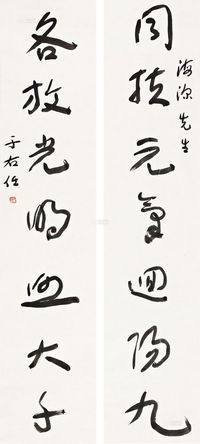 海先生
同扶元氣迴陽九
各放光明照大千
于右任